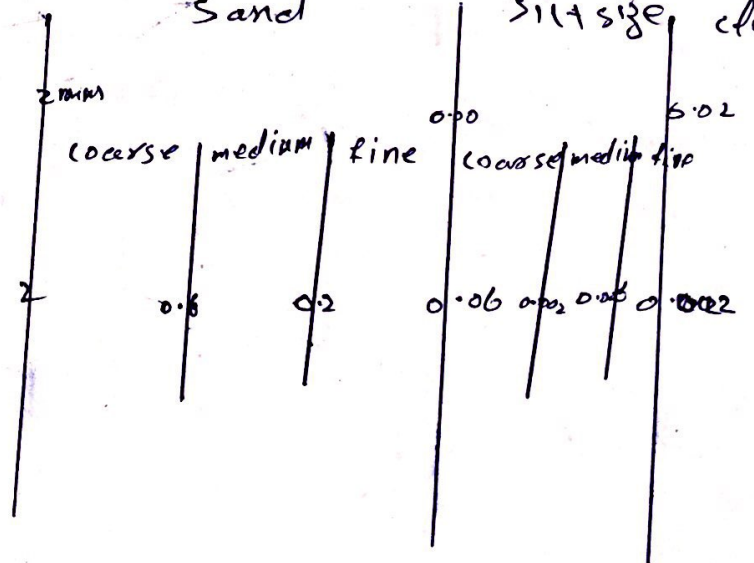 Sand silt size
2 mms 0.00 0.02
coarse medium fine coarse medium fine
2 0.6 0.2 0.06 0.002 0.006 0.002